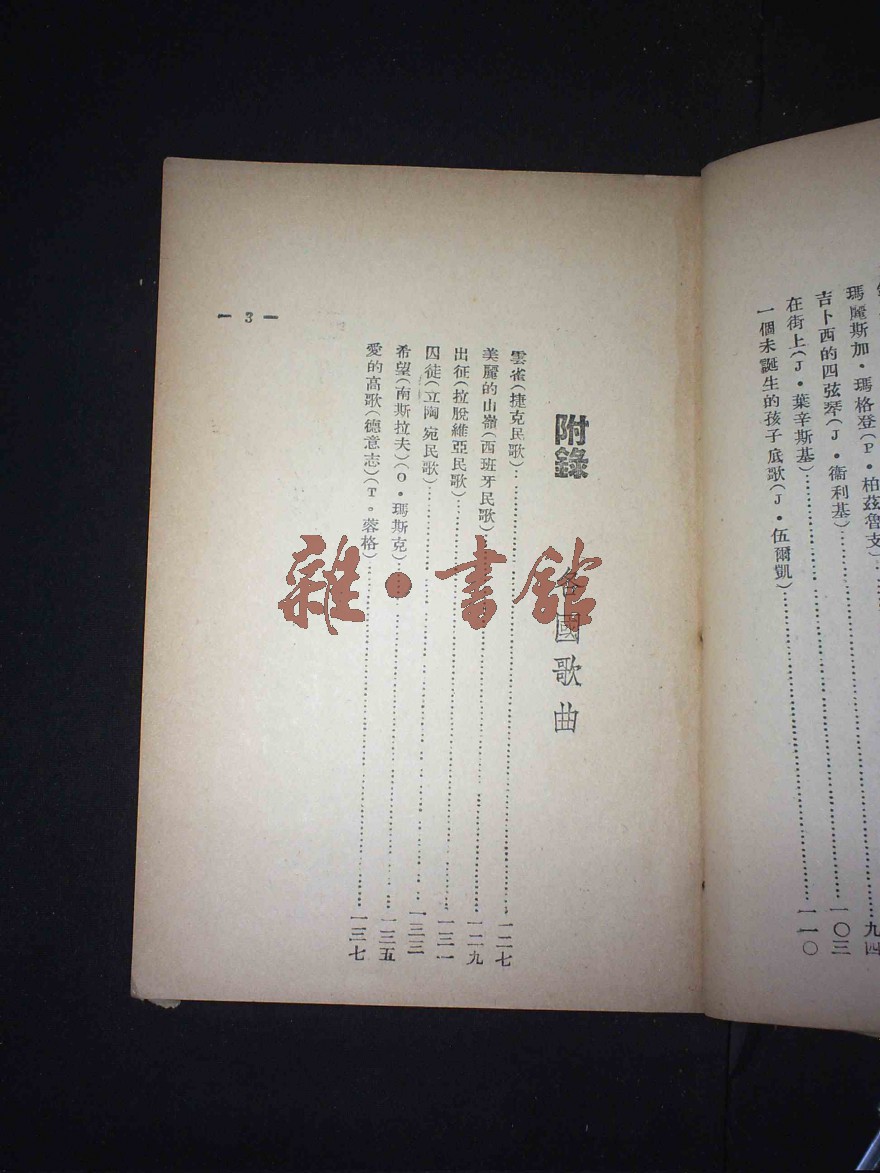 瑪麗斯加・瑪格登(P・柏茲魯支)
吉卜西的四弦琴(J・衞利基)……九四
在街上(J・葉辛斯基)……一〇三
一個未誕生的孩子底歌(J・伍爾凱)……一一〇
附錄 各國歌曲
雲雀(捷克民歌)……一二七
美麗的山嶺(西班牙民歌)……一二九
出征(拉脫維亞民歌)……一三一
囚徒(立陶宛民歌)……一三三
希望(南斯拉夫)(O・瑪斯克)……一三五
愛的高歌(德意志)(T。蓉格)……一三七
— 3 —
雜・書館